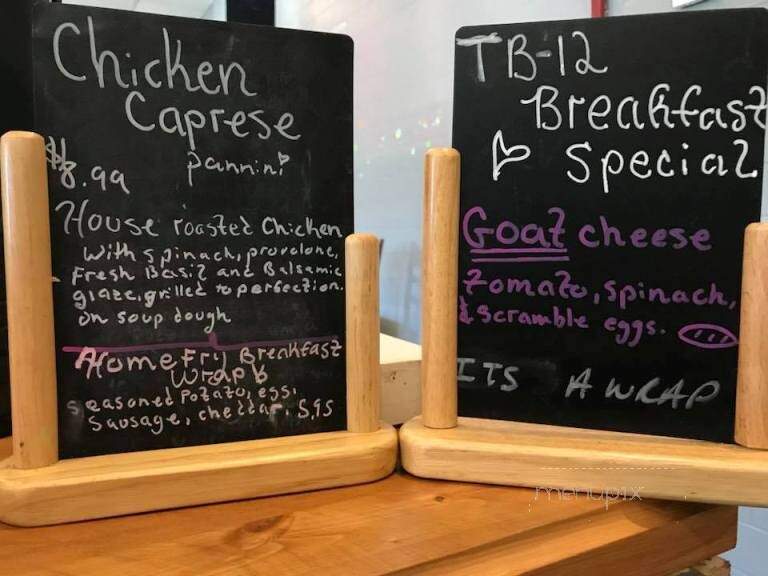 Chicken
Caprese
pannini
$8.99
House roasted Chicken
with spinach, provolone,
Fresh Basil and Balsamic
glaze, grilled to perfection.
on soup dough
HomeFry Breakfast
Wrap
seasoned potato, egg,
Sausage, cheddar. 5.95
TB-12
Breakfast
Special
Goat cheese
tomato, spinach,
& scramble eggs.
ITS A WRAP
menupix